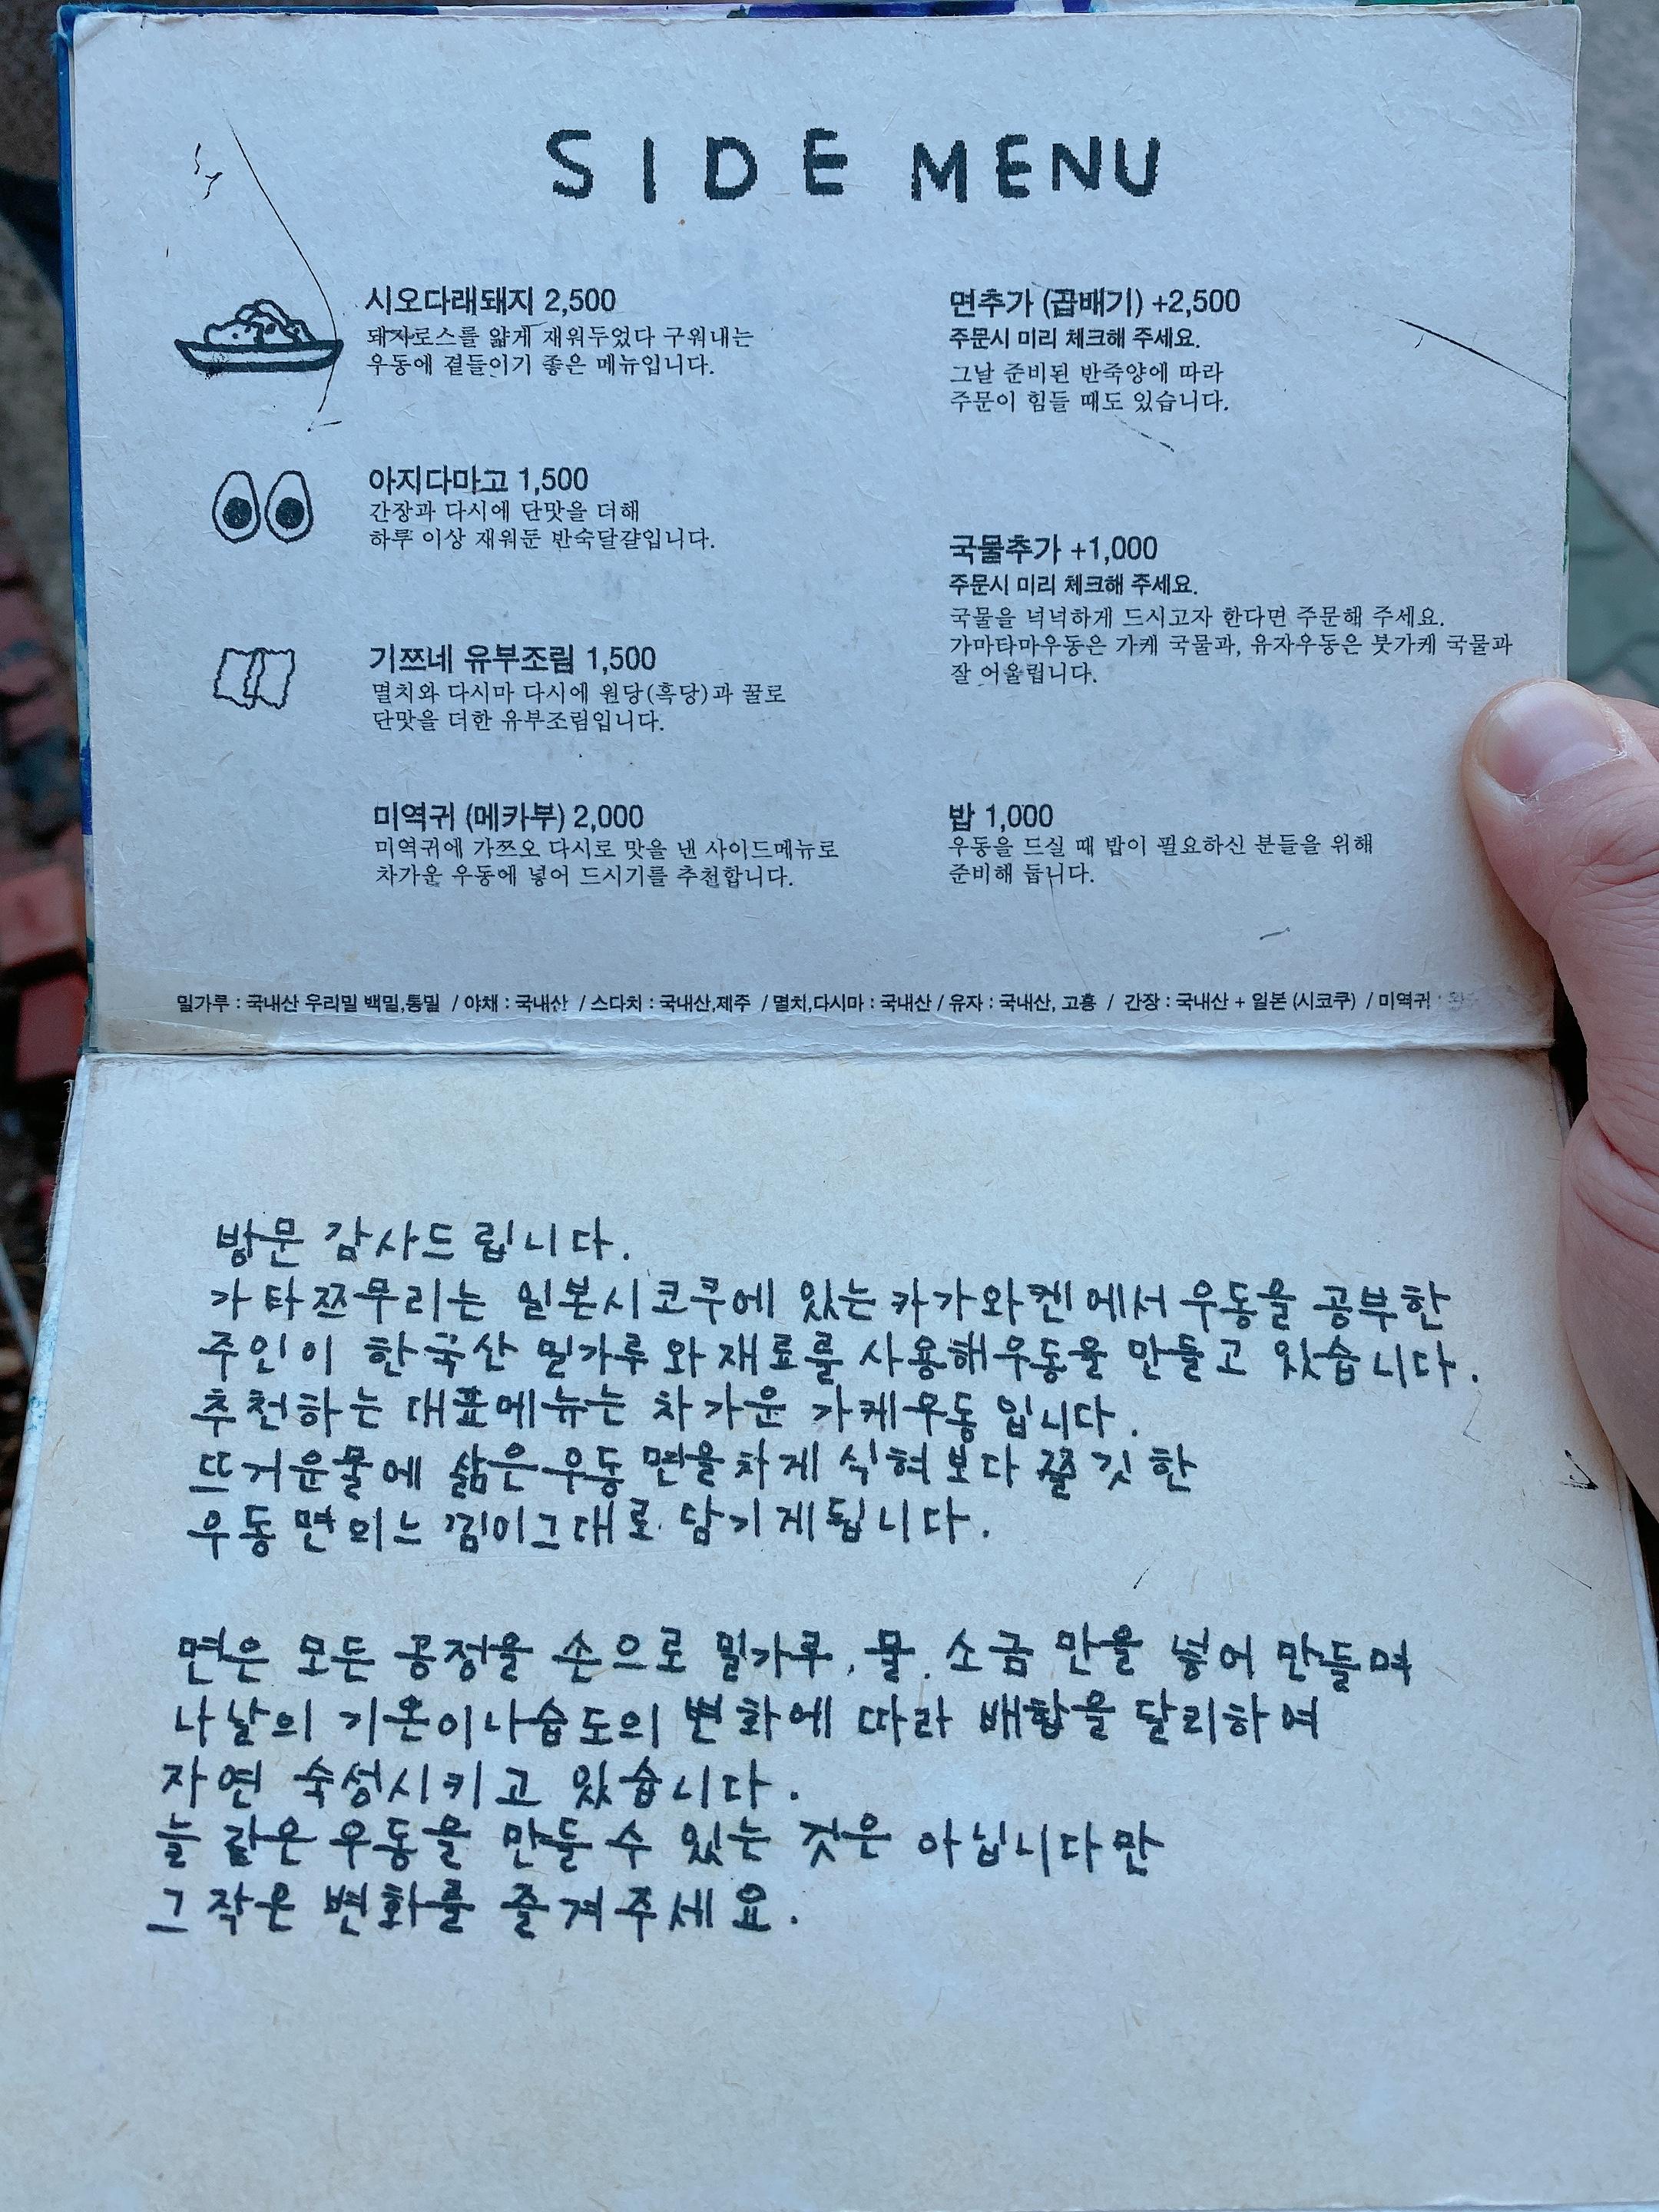 SIDE MENU
시오다래돼지 2,500
돼지로스를 얇게 재워두었다 구워내는
우동에 곁들이기 좋은 메뉴입니다.
아지다마고 1,500
간장과 다시에 단맛을 더해
하루 이상 재워둔 반숙달걀입니다.
기쯔네 유부조림 1,500
멸치와 다시마 다시에 원당(흑당)과 꿀로
단맛을 더한 유부조림입니다.
미역귀 (메카부) 2,000
미역귀에 가쯔오 다시로 맛을 낸 사이드메뉴로
차가운 우동에 넣어 드시기를 추천합니다.
면추가 (곱배기) +2,500
주문시 미리 체크해 주세요.
그날 준비된 반죽양에 따라
주문이 힘들 때도 있습니다.
국물추가 +1,000
주문시 미리 체크해 주세요.
국물을 넉넉하게 드시고자 한다면 주문해 주세요.
가마타마우동은 가케 국물과, 유자우동은 붓가케 국물과
잘 어울립니다.
밥 1,000
우동을 드실 때 밥이 필요하신 분들을 위해
준비해 둡니다.
밀가루 : 국내산 우리밀 백밀,통밀 / 야채 : 국내산 / 스다치 : 국내산,제주 / 멸치,다시마 : 국내산 / 유자 : 국내산, 고흥 / 간장 : 국내산 + 일본 (시코쿠) / 미역귀 :
방문 감사드립니다.
가타쯔무리는 일본시코쿠에 있는 카가와켄에서 우동을 공부한
주인이 한국산 밀가루와 재료를 사용해우동을 만들고 있습니다.
추천하는 대표메뉴는 차가운 가케우동입니다.
뜨거운물에 삶은우동 면을차게 식혀보다 쫄깃한
우동면의느낌이그대로 담기게됩니다.
면은 모든 공정을 손으로 밀가루, 물, 소금 만을 넣어 만들며
나날의 기온이나습도의 변화에 따라 배합을 달리하여
자연 숙성시키고 있습니다.
늘 같은 우동을 만들수 있는 것은 아닙니다만
그 작은 변화를 즐겨주세요.